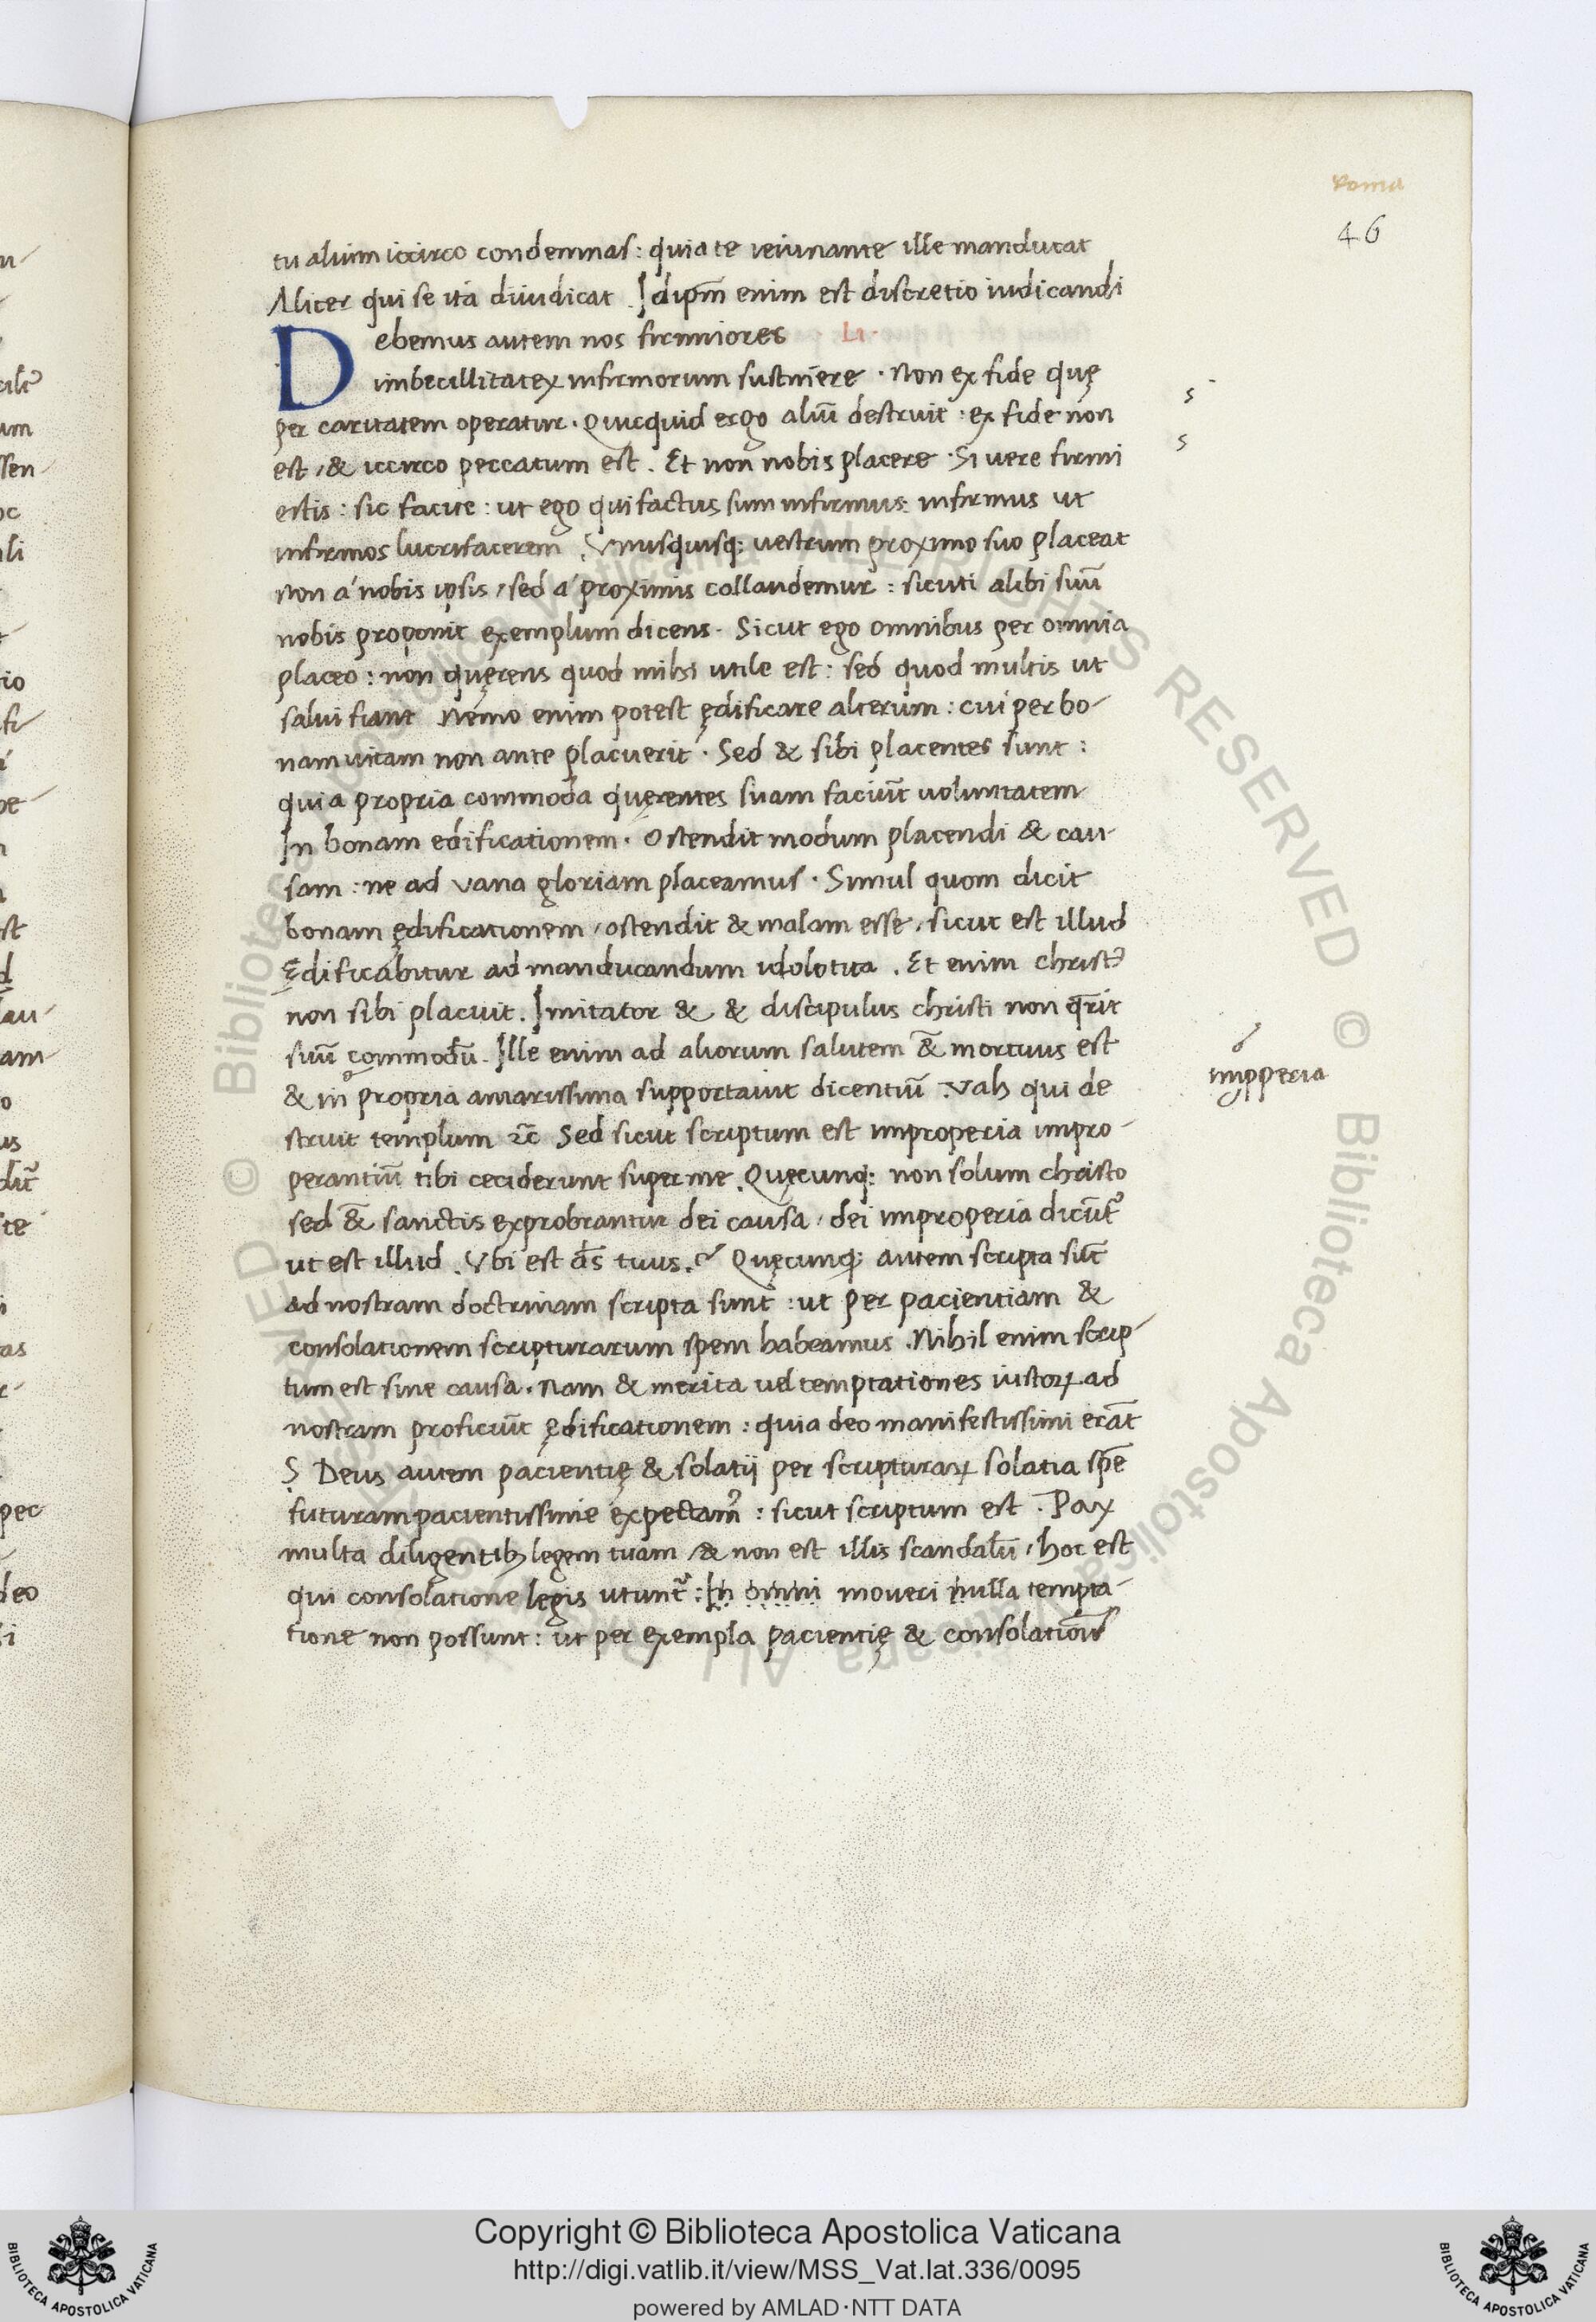 Roma
46
tu alium iccirco condemnas: quia te ieiunante ille manducat
Aliter qui se ita diiudicat. Idipm̄ enim est discretio iudicandi
Debemus autem nos firmiores
imbecillitatex infirmorum sustinere · Non ex fide quę
per caritatem operatur. Quicquid ergo aliū destruit: ex fide non
est, & iccirco peccatum est. Et non nobis placere · Si vere firmi
estis: sic facite: ut ego qui factus sum infirmus: infirmus ut
infirmos lucrifacerem. Vnusquisq; uestrum proximo suo placeat
non á nobis ipsis, sed á proximis collaudemur: sicuti alibi suū
nobis proponit exemplum dicens. Sicut ego omnibus per omnia
placeo: non quęrens quod mihi utile est: sed quod multis ut
salui fiant Nemo enim potest ędificare alterum: cui per bo-
nam uitam non ante placuerit. Sed & sibi placentes sunt:
quia propria commoda quęrentes suam faciūt voluntatem
In bonam edificationem. Ostendit modum placendi & cau-
sam: ne ad vana gloriam placeamus. Simul quom dicit
bonam ędificationem, ostendit & malam esse, sicut est illud
Ędificabitur ad manducandum idolotita. Et enim christꝰ
non sibi placuit. Imitator & & discipulus christi non q̄rit
suū commodū. Ille enim ad aliorum salutem &̄ mortuus est
& in propria amarissima supportauit dicentiū. Vah qui de
impperia
struit templum ⁊c̄ Sed sicut scriptum est improperia impro-
perantiū tibi ceciderunt super me. Quęcunq; non solum christo
sed &̄ sanctis exprobrantur dei causa, dei improperia dicūt᷑
ut est illud. Vbi est d̄s tuus.? Quęcunq; autem scripta sūt
ad nostram doctrinam scripta sunt: ut per pacientiam &
consolationem scripturarum spem habeamus. Nihil enim scrip-
tum est sine causa. Nam & merita uel temptationes iustoꝝ ad
nostram proficiūt ędificationem: quia deo manifestissimi erāt
S Deus autem pacientię & solatij per scripturaꝝ solatia spē
futuram pacientissime expectamꝰ: sicut scriptum est. Pax
multa diligentibꝫ legem tuam, & non est illis scandalū, hoc est
qui consolatione legis utunt᷑: In omni moueri nulla tempta-
tione non possunt: ut per exempla pacientię & consolationis
Copyright © Biblioteca Apostolica Vaticana
http://digi.vatlib.it/view/MSS_Vat.lat.336/0095
powered by AMLAD·NTT DATA